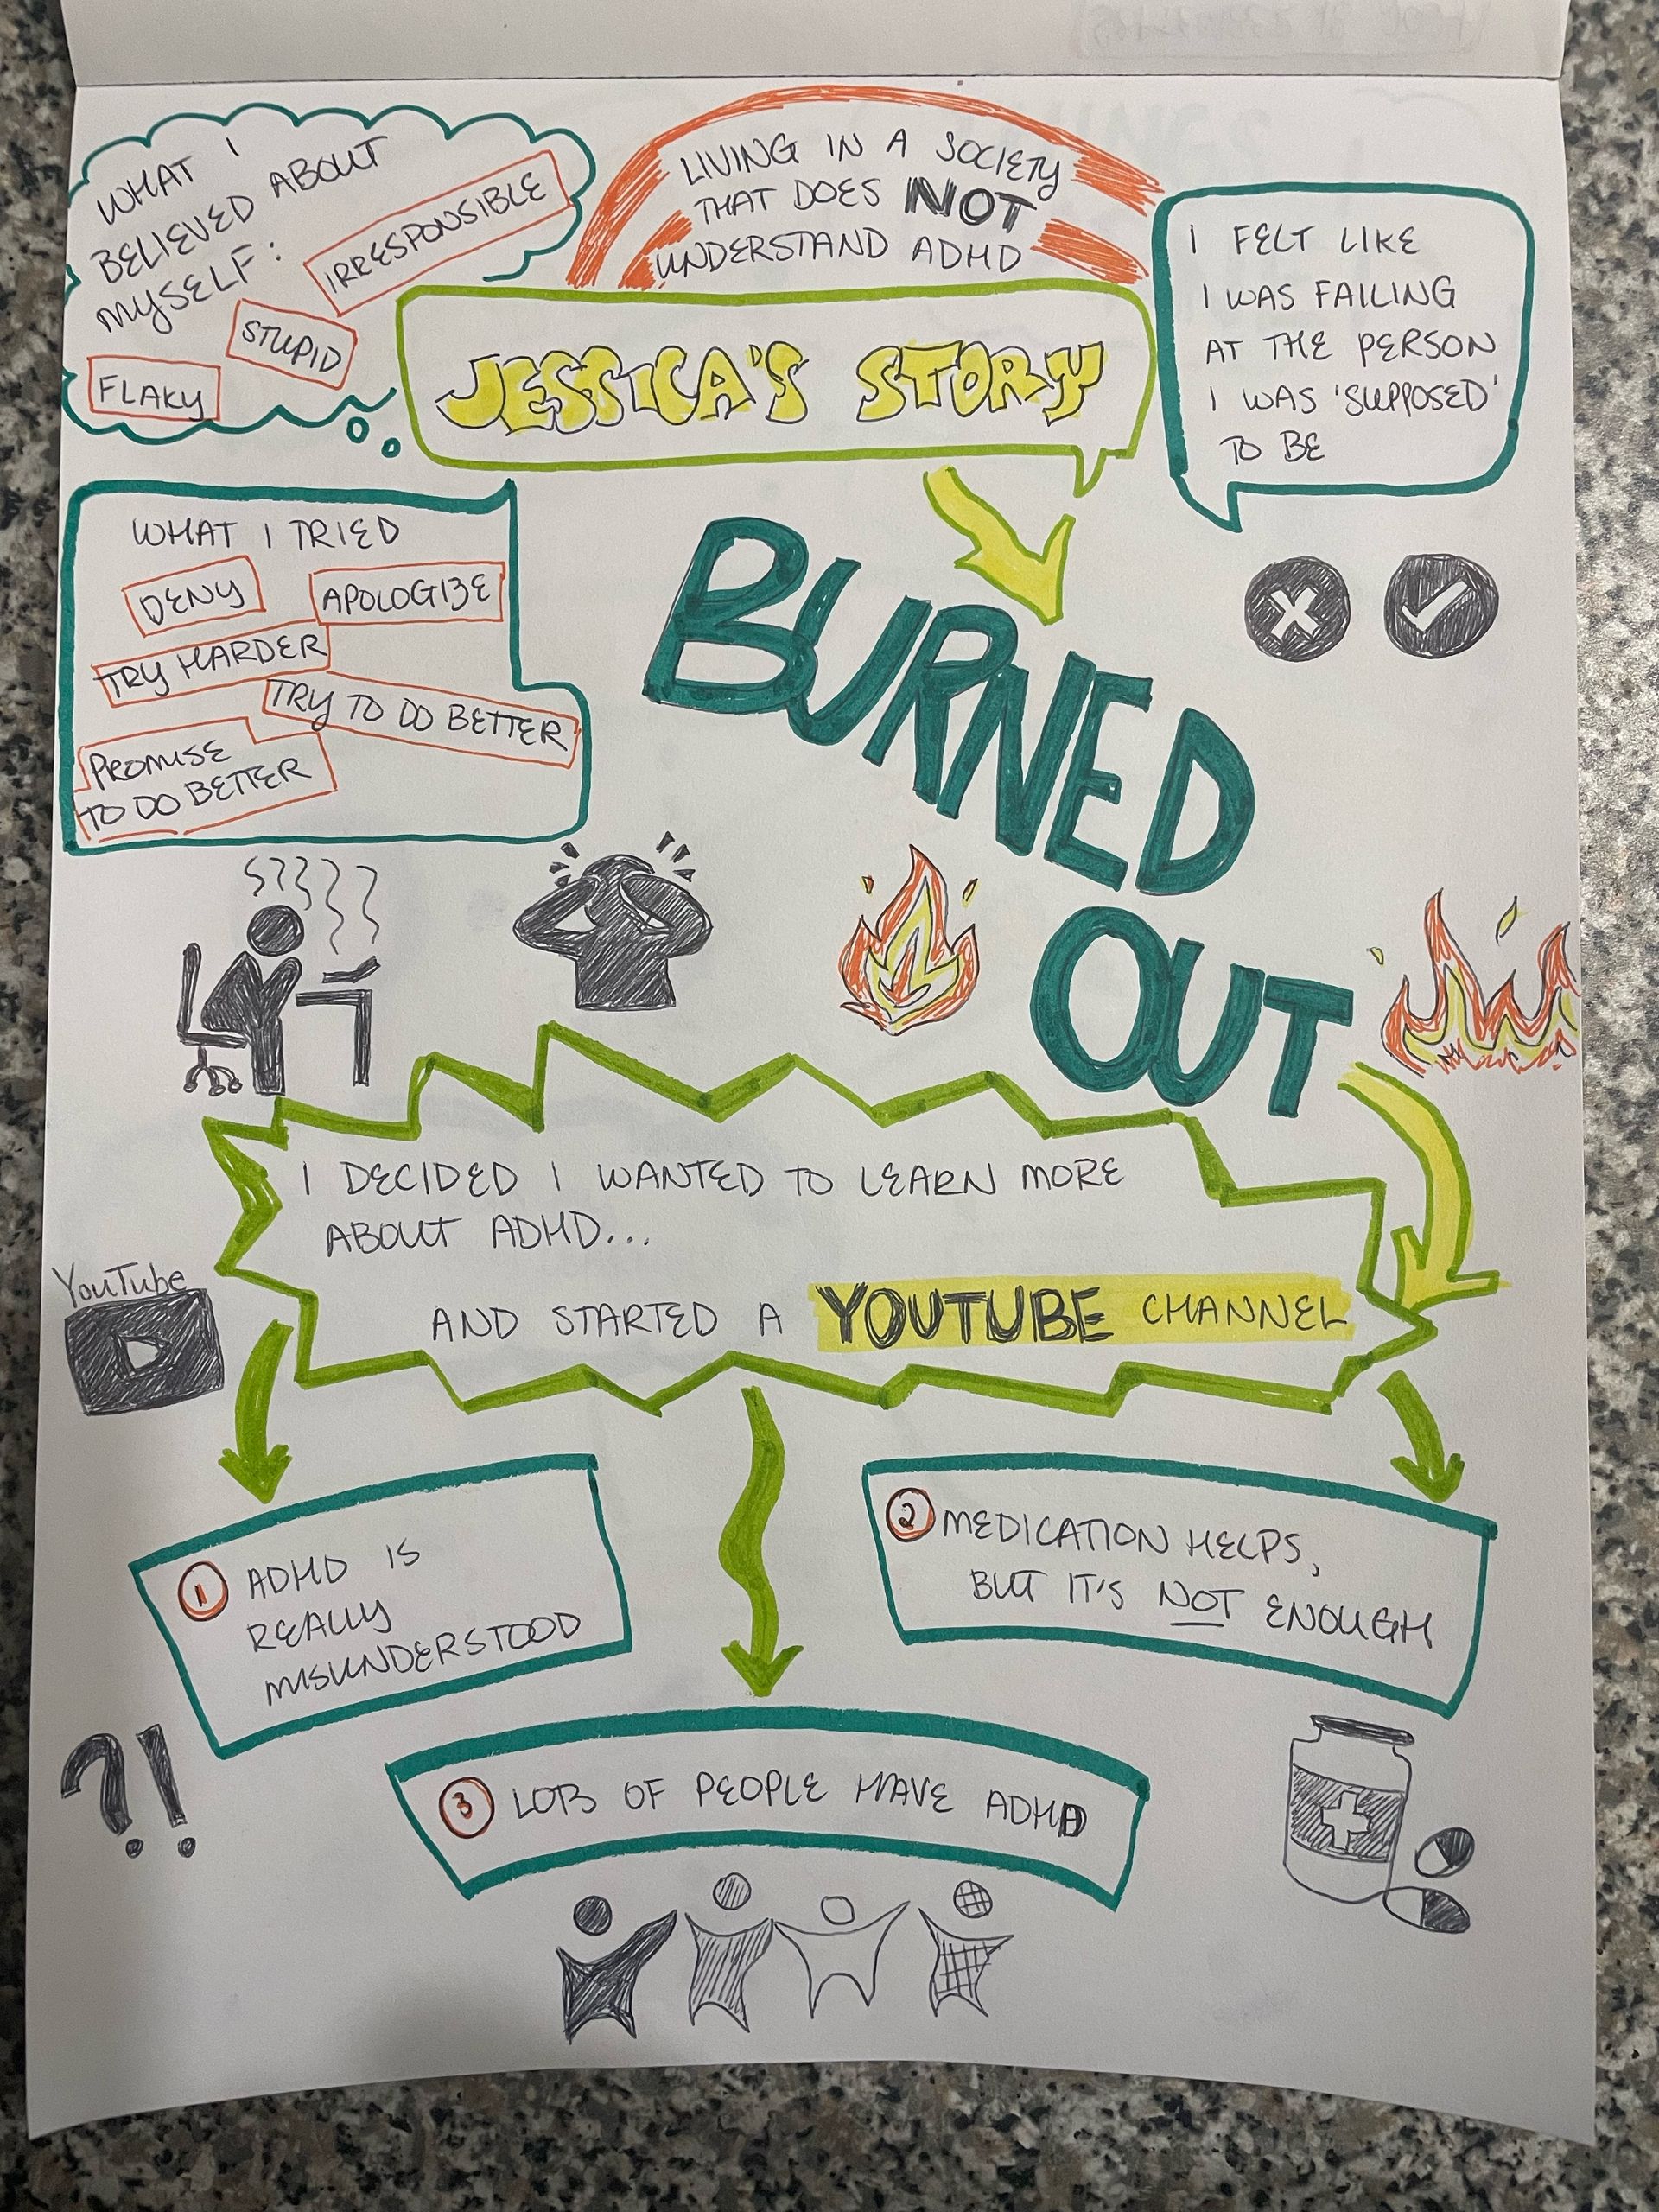 WHAT I
BELIEVED ABOUT
MYSELF:
IRRESPONSIBLE
STUPID
FLAKY
LIVING IN A SOCIETY
THAT DOES NOT
UNDERSTAND ADHD
JESSICA'S STORY
I FELT LIKE
I WAS FAILING
AT THE PERSON
I WAS 'SUPPOSED'
TO BE
WHAT I TRIED
DENY
APOLOGIZE
TRY HARDER
TRY TO DO BETTER
PROMISE
TO DO BETTER
BURNED
OUT
I DECIDED I WANTED TO LEARN MORE
ABOUT ADHD...
AND STARTED A YOUTUBE CHANNEL
YouTube
1 ADHD IS
REALLY
MISUNDERSTOOD
2 MEDICATION HELPS,
BUT IT'S NOT ENOUGH
?!
3 LOTS OF PEOPLE HAVE ADHD